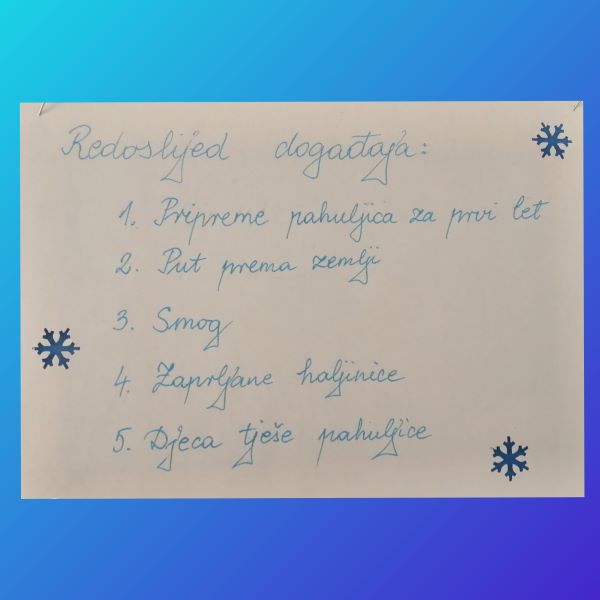 Redoslijed događaja:
1. Pripreme pahuljica za prvi let
2. Put prema zemlji
3. Smog
4. Zaprljane haljinice
5. Djeca tješe pahuljice